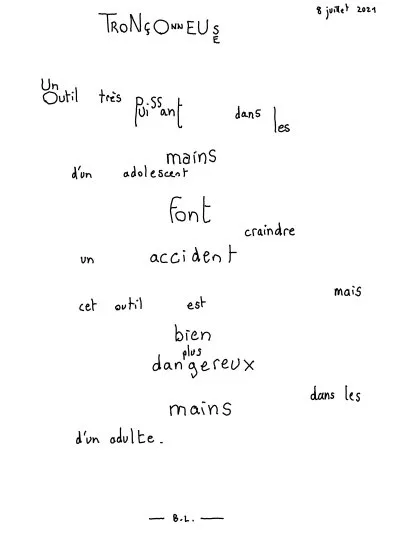 8 juillet 2021
TRONÇONNEUSE
Un
Outil très puissant dans les
mains
d'un adolescent
font
craindre
un accident
mais
cet outil est
bien
plus
dangereux
dans les
mains
d'un adulte.
— B.L. —